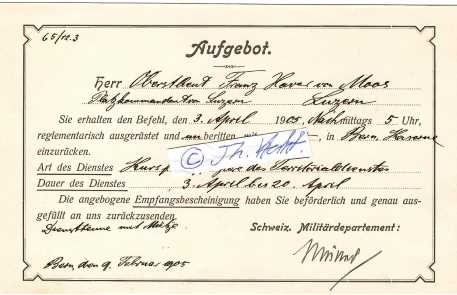 65/12.3
Aufgebot.
Herr Oberstlieut Franz Xaver von Moos
Platzkommandant von Luzern Luzern
Sie erhalten den Befehl, den 3. April 1905, Nachmittags 5 Uhr,
reglementarisch ausgerüstet und unberitten mit –, in Bern, Kaserne
einzurücken.
© Th. Hecht
Art des Dienstes Kurs des Territorialdienstes
Dauer des Dienstes 3. April bis 20. April
Die angebogene Empfangsbescheinigung haben Sie beförderlich und genau aus-
gefüllt an uns zurückzusenden.
Diensttenue mit Mütze
Schweiz. Militärdepartement:
Müller
Bern, den 9. Februar 1905